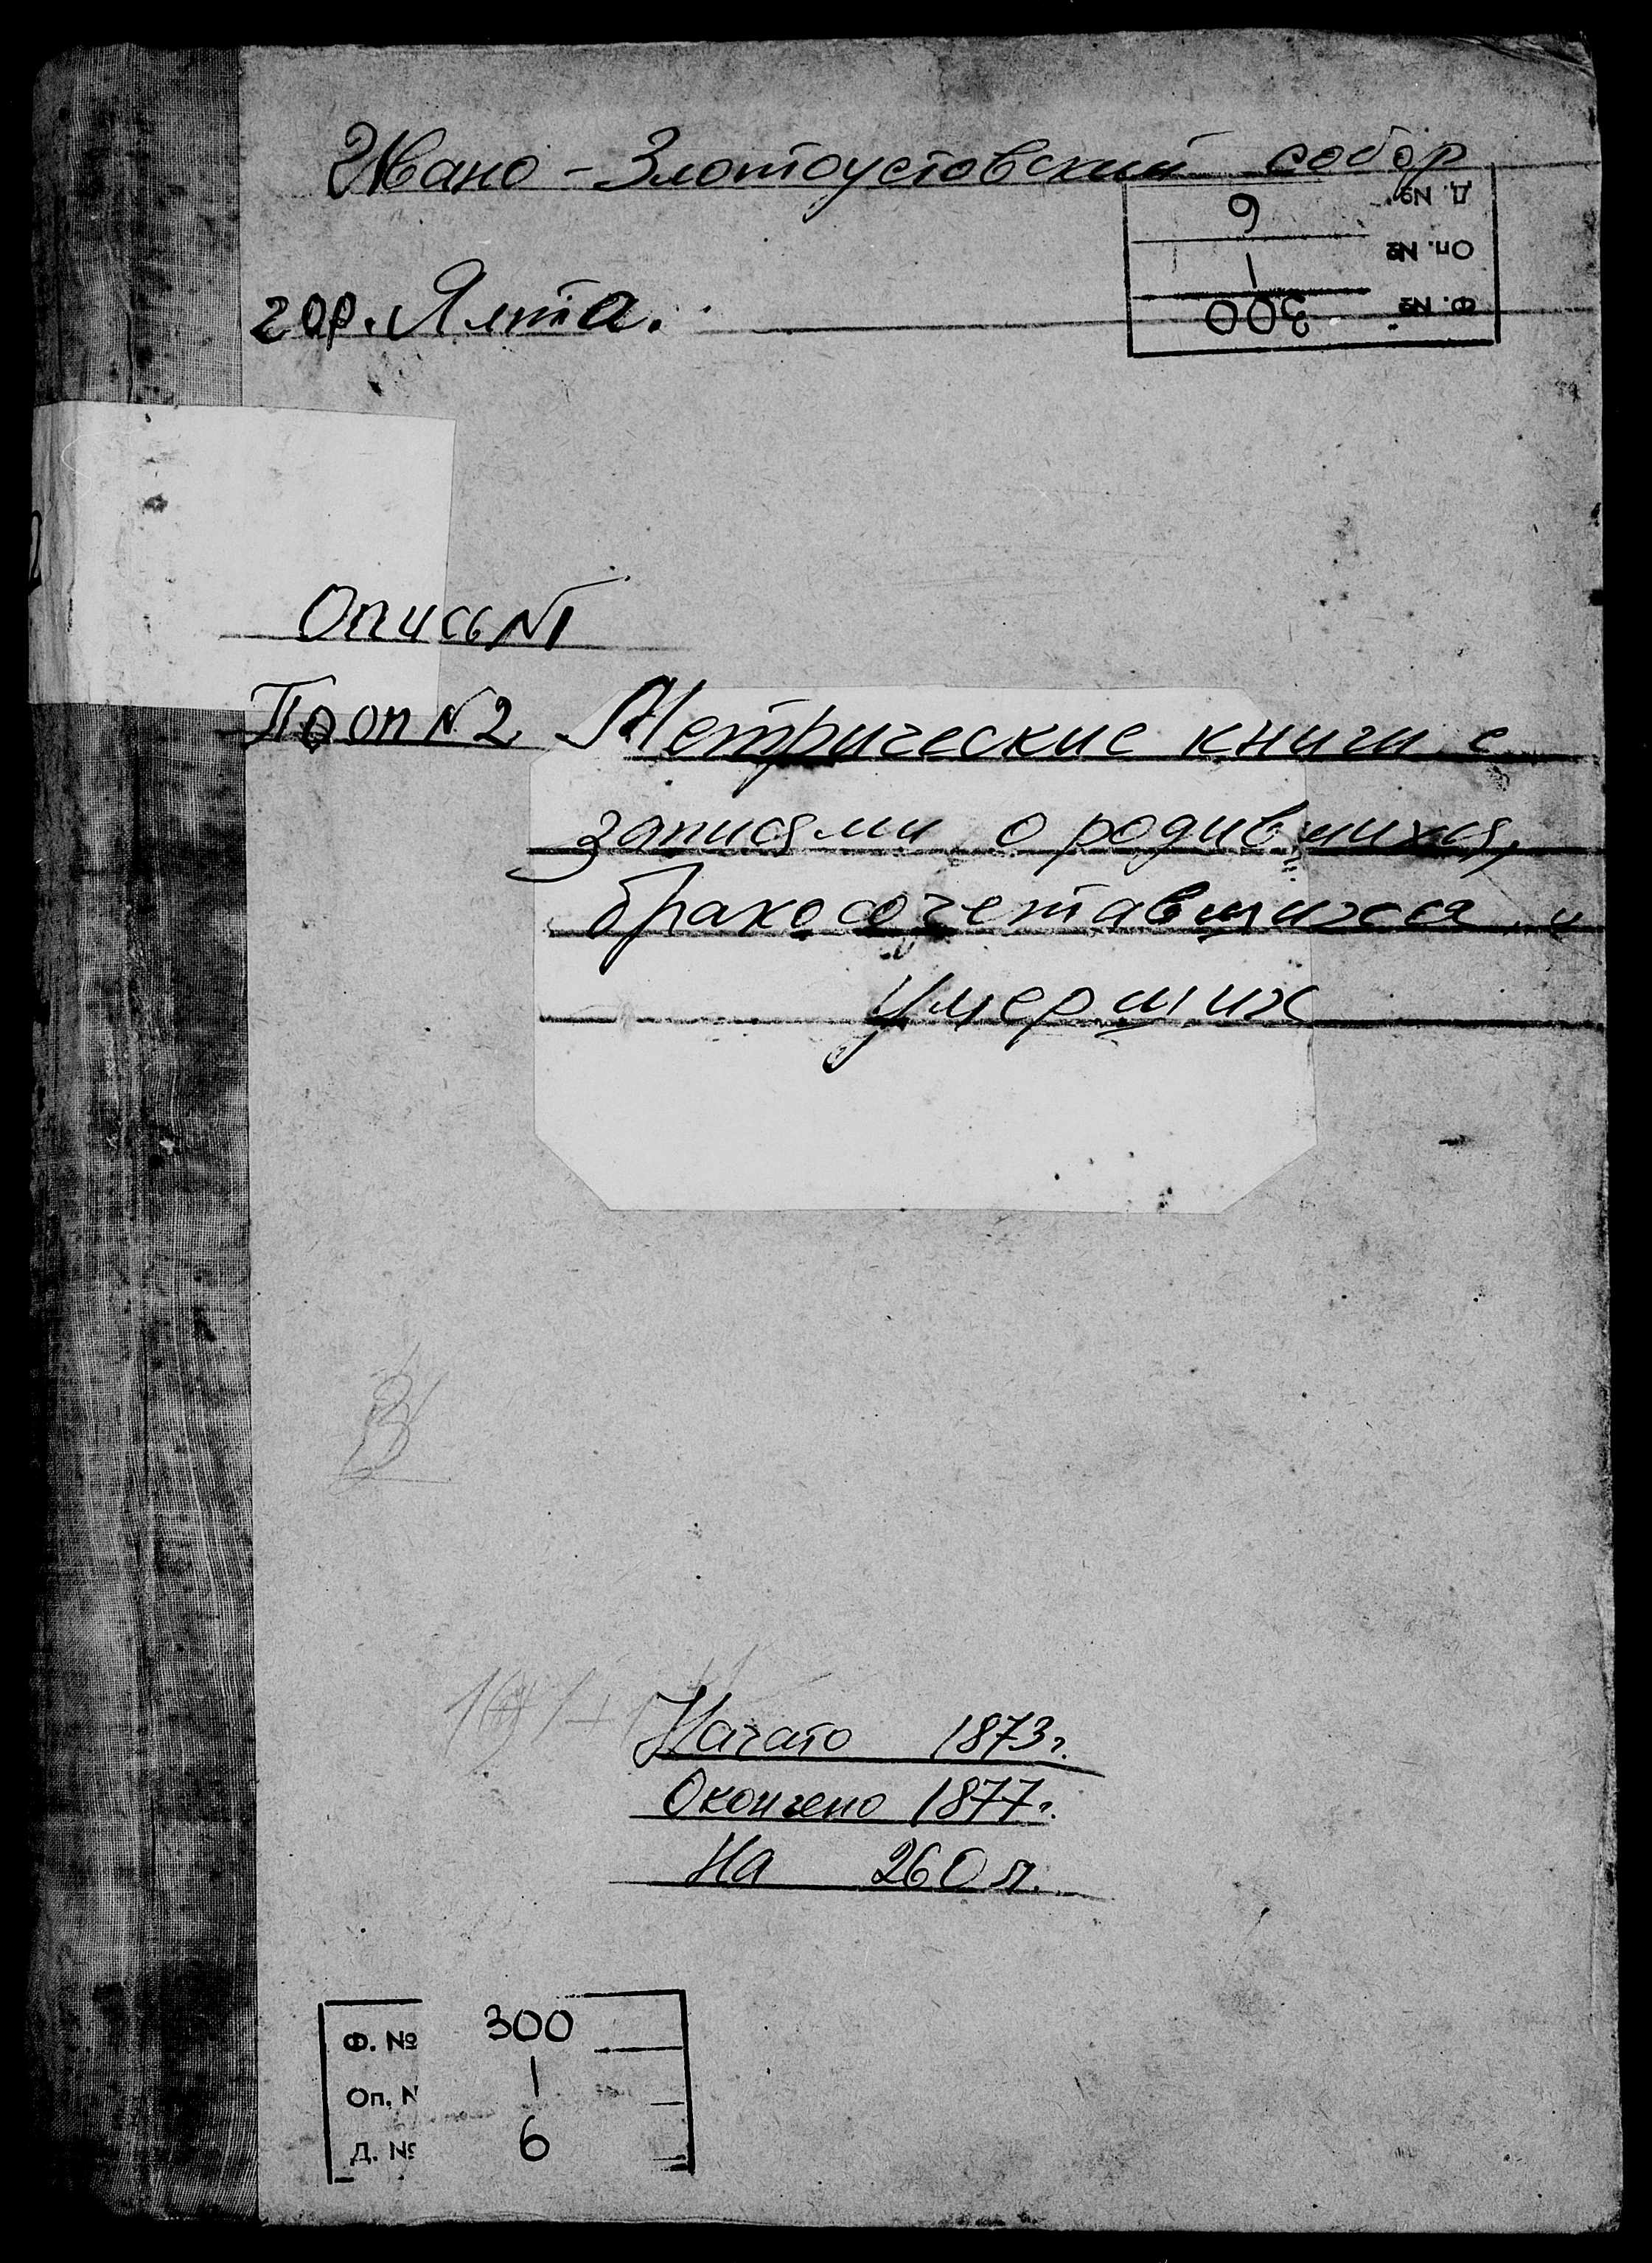 Ивано - Златоустовский собор
Д. № 6
Оп. № 1
Ф. № 300
гор. Ялта.
Опись №1
По оп № 2 Метрические книги с
записями о родившихся,
бракосочетавшихся и
умерших
Начато 1873 г.
Окончено 1877 г.
На 260 л.
Ф. № 300
Оп. № 1
Д. № 6